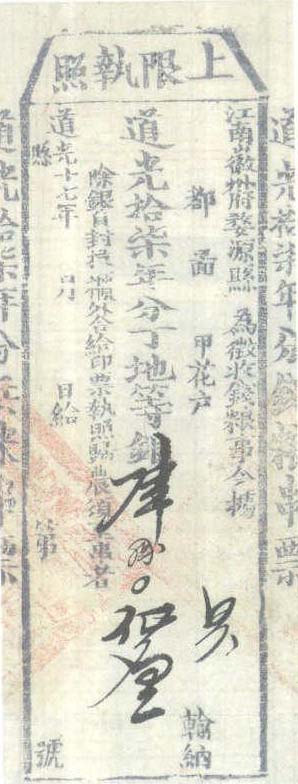 上限執照
道光拾柒年分錢糧串票
江南徽州府婺源縣為徵收錢糧事今據
都 啚 甲花户 輸納
道光拾柒年分丁地等銀
除銀自封投櫃外合給印票執照歸農須至者
道光十七年 月 日給
縣 第 號
道光拾柒年分